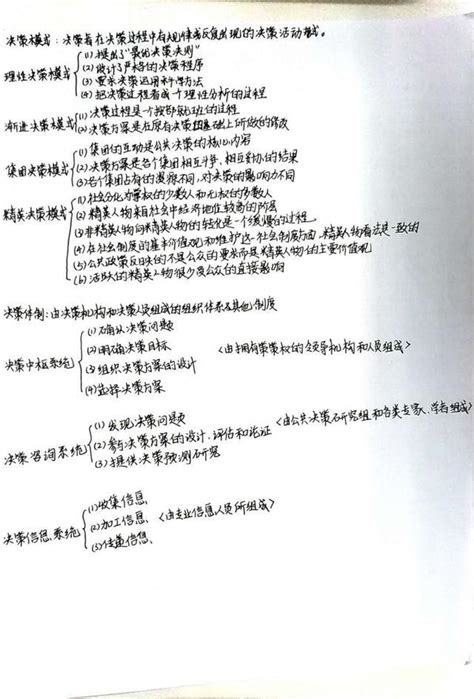 决策模式：决策者在决策过程中有规律或反复出现的决策活动模式。
理性决策模式
(1)提出了"最优决策决则"
(2)设计了严格的决策程序
(3)要求决策运用科学方法
(4)把决策过程看成一个理性分析的过程
渐进决策模式
(1)决策过程是一个按部就班的过程
(2)决策方案是在原有决策基础上所做的修改
集团决策模式
(1)集团的互动是公共决策的核心内容
(2)决策方案是各个集团相互斗争，相互妥协的结果
(3)各个集团占有的资源不同，对决策的影响力不同
精英决策模式
(1)社会分化为掌权的少数人和无权的多数人
(2)精英人物来自社会中经济地位较高的阶层
(3)非精英人物向精英人物的转化是一个缓慢的过程
(4)在社会制度的基本价值观和维护这一社会制度方面，精英人物看法是一致的
(5)公共政策反映的不是公众的要求而是精英人物的主要价值观
(6)活跃的精英人物很少受公众的直接影响
决策体制：由决策机构和决策人员组成的组织体系及其他制度
决策中枢系统
(1)确认决策问题
(2)明确决策目标
(3)组织决策方案的设计
(4)选择决策方案
<由拥有决策权的领导机构和人员组成>
决策咨询系统
(1)发现决策问题
(2)参与决策方案的设计、评估和论证
(3)提供决策预测研究
<由公共决策研究组和各类专家、学者组成>
决策信息系统
(1)收集信息
(2)加工信息
(3)传递信息
<由专业信息人员所组成>